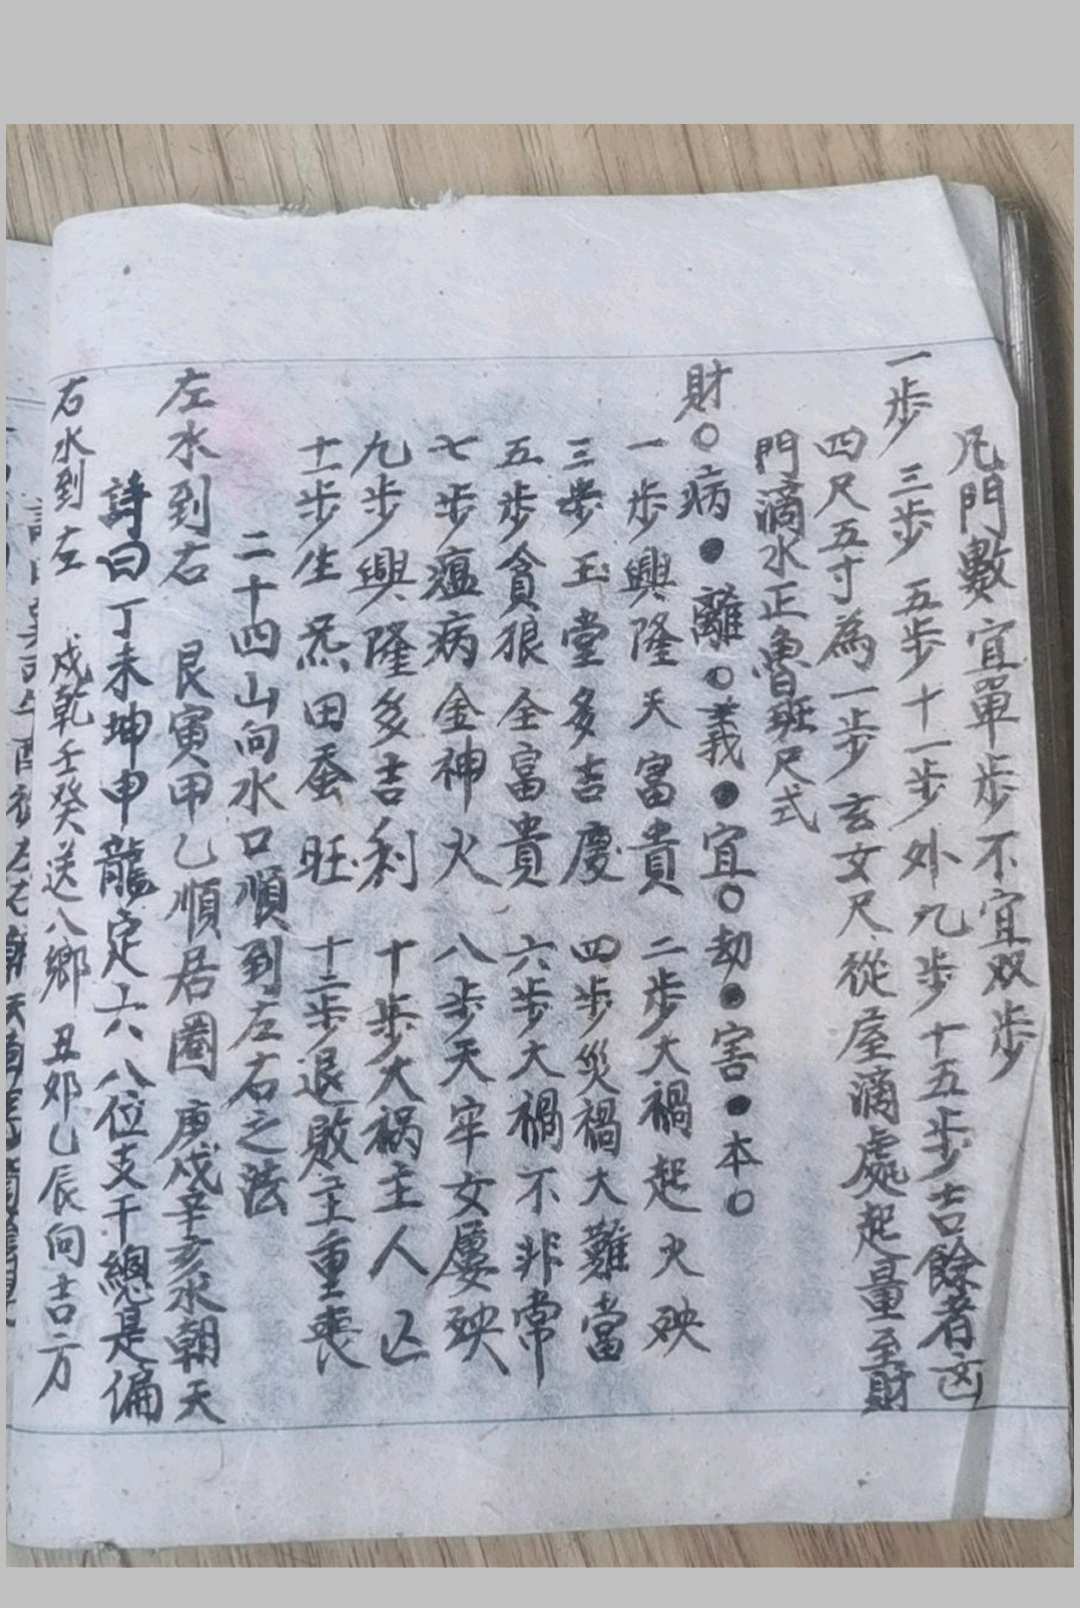 凡門數宜單步不宜双步
一步 三步 五步十一步外九步十五步吉餘者凶
四尺五寸為一步玄女尺從屋滴處起量至財
門滴水正魯班尺式
財○病●離○義●宜○劫●害●本○
一步興隆天富貴 二步大禍起火殃
三步玉堂多吉慶 四步災禍大難當
五步貪狼全富貴 六步大禍不非常
七步瘟病金神火 八步天牢女屢殃
九步興隆多吉利 十步大祸主人亡
十一步生炁田蚕旺 十二步退敗主重喪
二十四山向水口順到左右之法
左水到右 艮寅甲乙順居圈 庚戌辛亥水朝天
詩曰丁未坤申龍定六八位支干總是偏
右水到左 戍乾壬癸送八鄉 丑卯乙辰向吉方